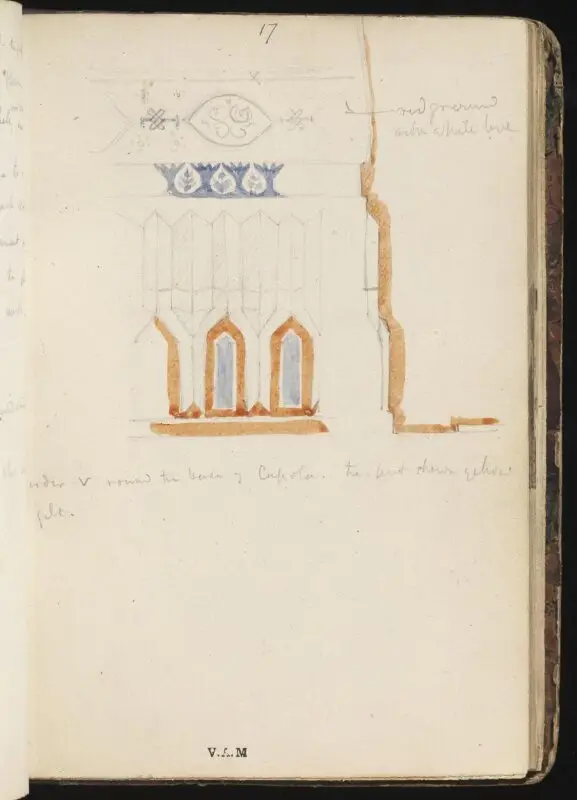 17
red ground
with white line
V round the base of Cupola. the part shown yellow
gilt.
V.&.M